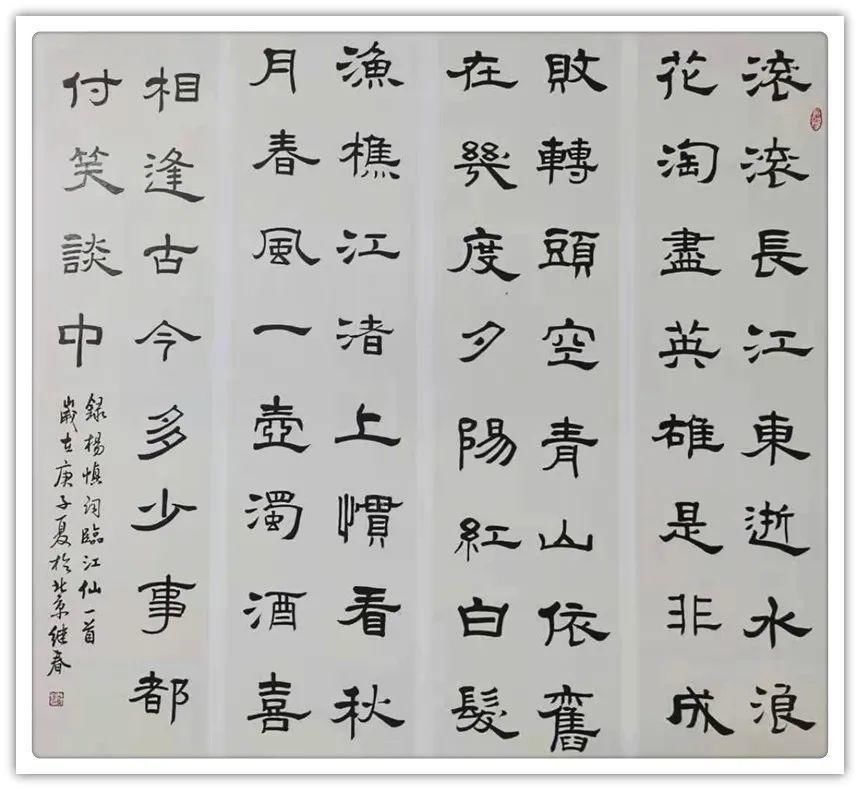 滚滚長江東逝水浪
花淘盡英雄是非成
敗轉頭空青山依舊
在幾度夕陽紅白髮
漁樵江渚上慣看秋
月春風一壺濁酒喜
相逢古今多少事都
付笑談中
録楊慎词臨江仙一首
歲在庚子夏於北京继春